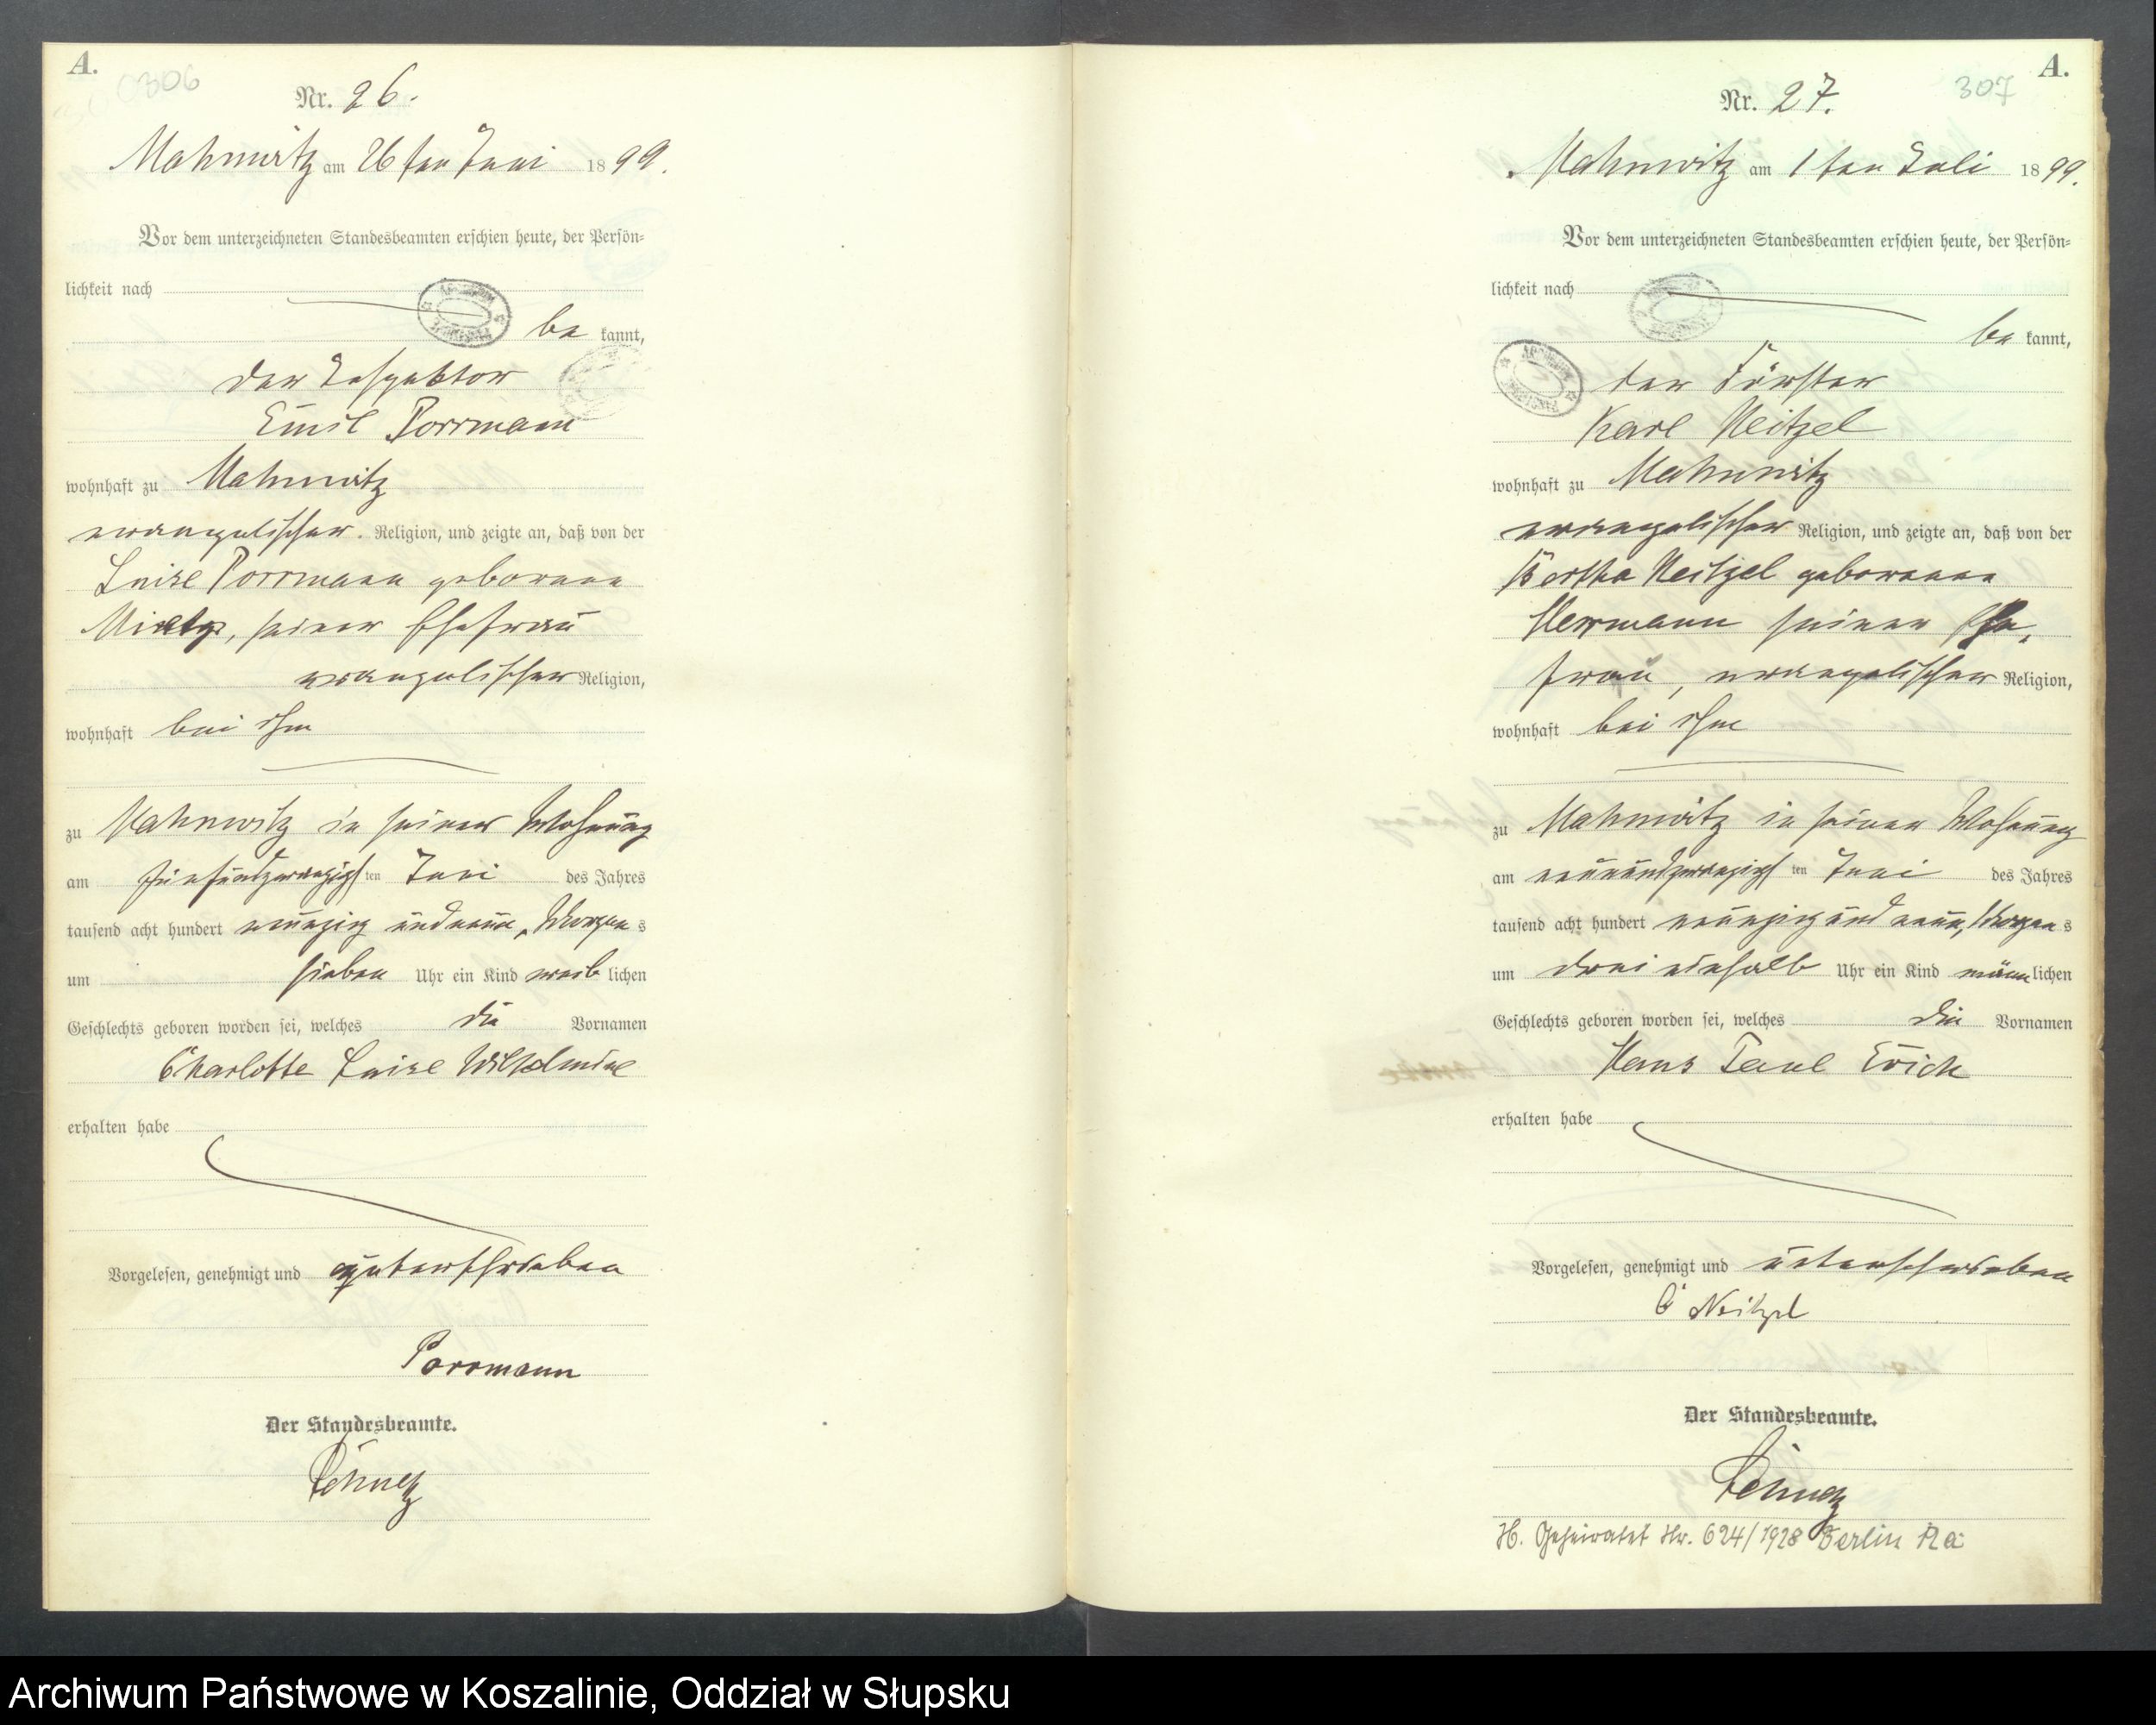 A.
0306
Nr. 26.
Mahnwitz am 26 ten Juni 1899.
Vor dem unterzeichneten Standesbeamten erschien heute, der Persön-
lichkeit nach
be kannt,
der Inspektor
Emil Porrmann
wohnhaft zu Mahnwitz
evangelischer Religion, und zeigte an, daß von der
Luise Porrmann geborene
seiner Ehefrau
evangelischer Religion,
wohnhaft bei ihm
zu Mahnwitz in seiner Wohnung
am fünfundzwanzigs ten Juni des Jahres
tausend acht hundert neunzig und neun, Morgens
um sieben Uhr ein Kind weib lichen
Geschlechts geboren worden sei, welches die Vornamen
Charlotte Luise Wilhelmine
erhalten habe
Vorgelesen, genehmigt und unterschrieben
Porrmann
Der Standesbeamte.
A.
307
Nr. 27.
Mahnwitz am 1 ten Juli 1899.
Vor dem unterzeichneten Standesbeamten erschien heute, der Persön-
lichkeit nach
be kannt,
der Förster
Karl Neitzel
wohnhaft zu Mahnwitz
evangelischer Religion, und zeigte an, daß von der
Bertha Neitzel geborenen
Herrmann seiner Ehe-
frau, evangelischer Religion,
wohnhaft bei ihm
zu Mahnwitz in seiner Wohnung
am neunundzwanzigs ten Juni des Jahres
tausend acht hundert neunzig und neun, Morgens
um drei einhalb Uhr ein Kind männlichen
Geschlechts geboren worden sei, welches die Vornamen
Hans Paul Erich
erhalten habe
Vorgelesen, genehmigt und unterschrieben
C Neitzel
Der Standesbeamte.
H. Geheiratet Nr. 624/1928 Berlin
Archiwum Państwowe w Koszalinie, Oddział w Słupsku